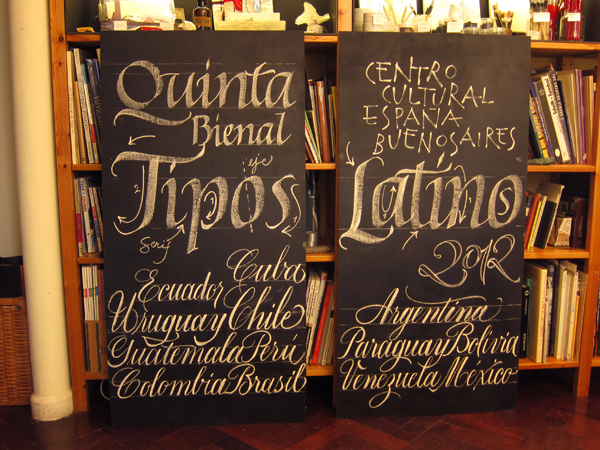 Quinta
Bienal
eje
Tipos
serif
Cuba
Ecuador
Uruguay Chile
Guatemala Perú
Colombia Brasil
CENTRO
CULTURAL
ESPAÑA
BUENOS AIRES
Latinos
2012
Argentina
Paraguay Bolivia
Venezuela México